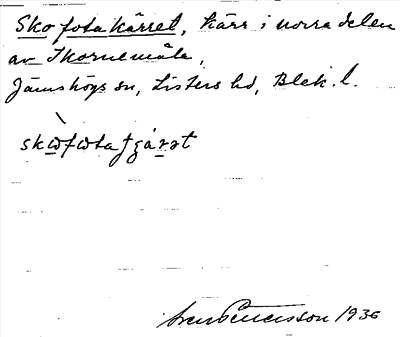 Skofotakärret, kärr i norra delen
av Skornemåla,
Jämshögs sn, Listers hd, Blek. l.
1936